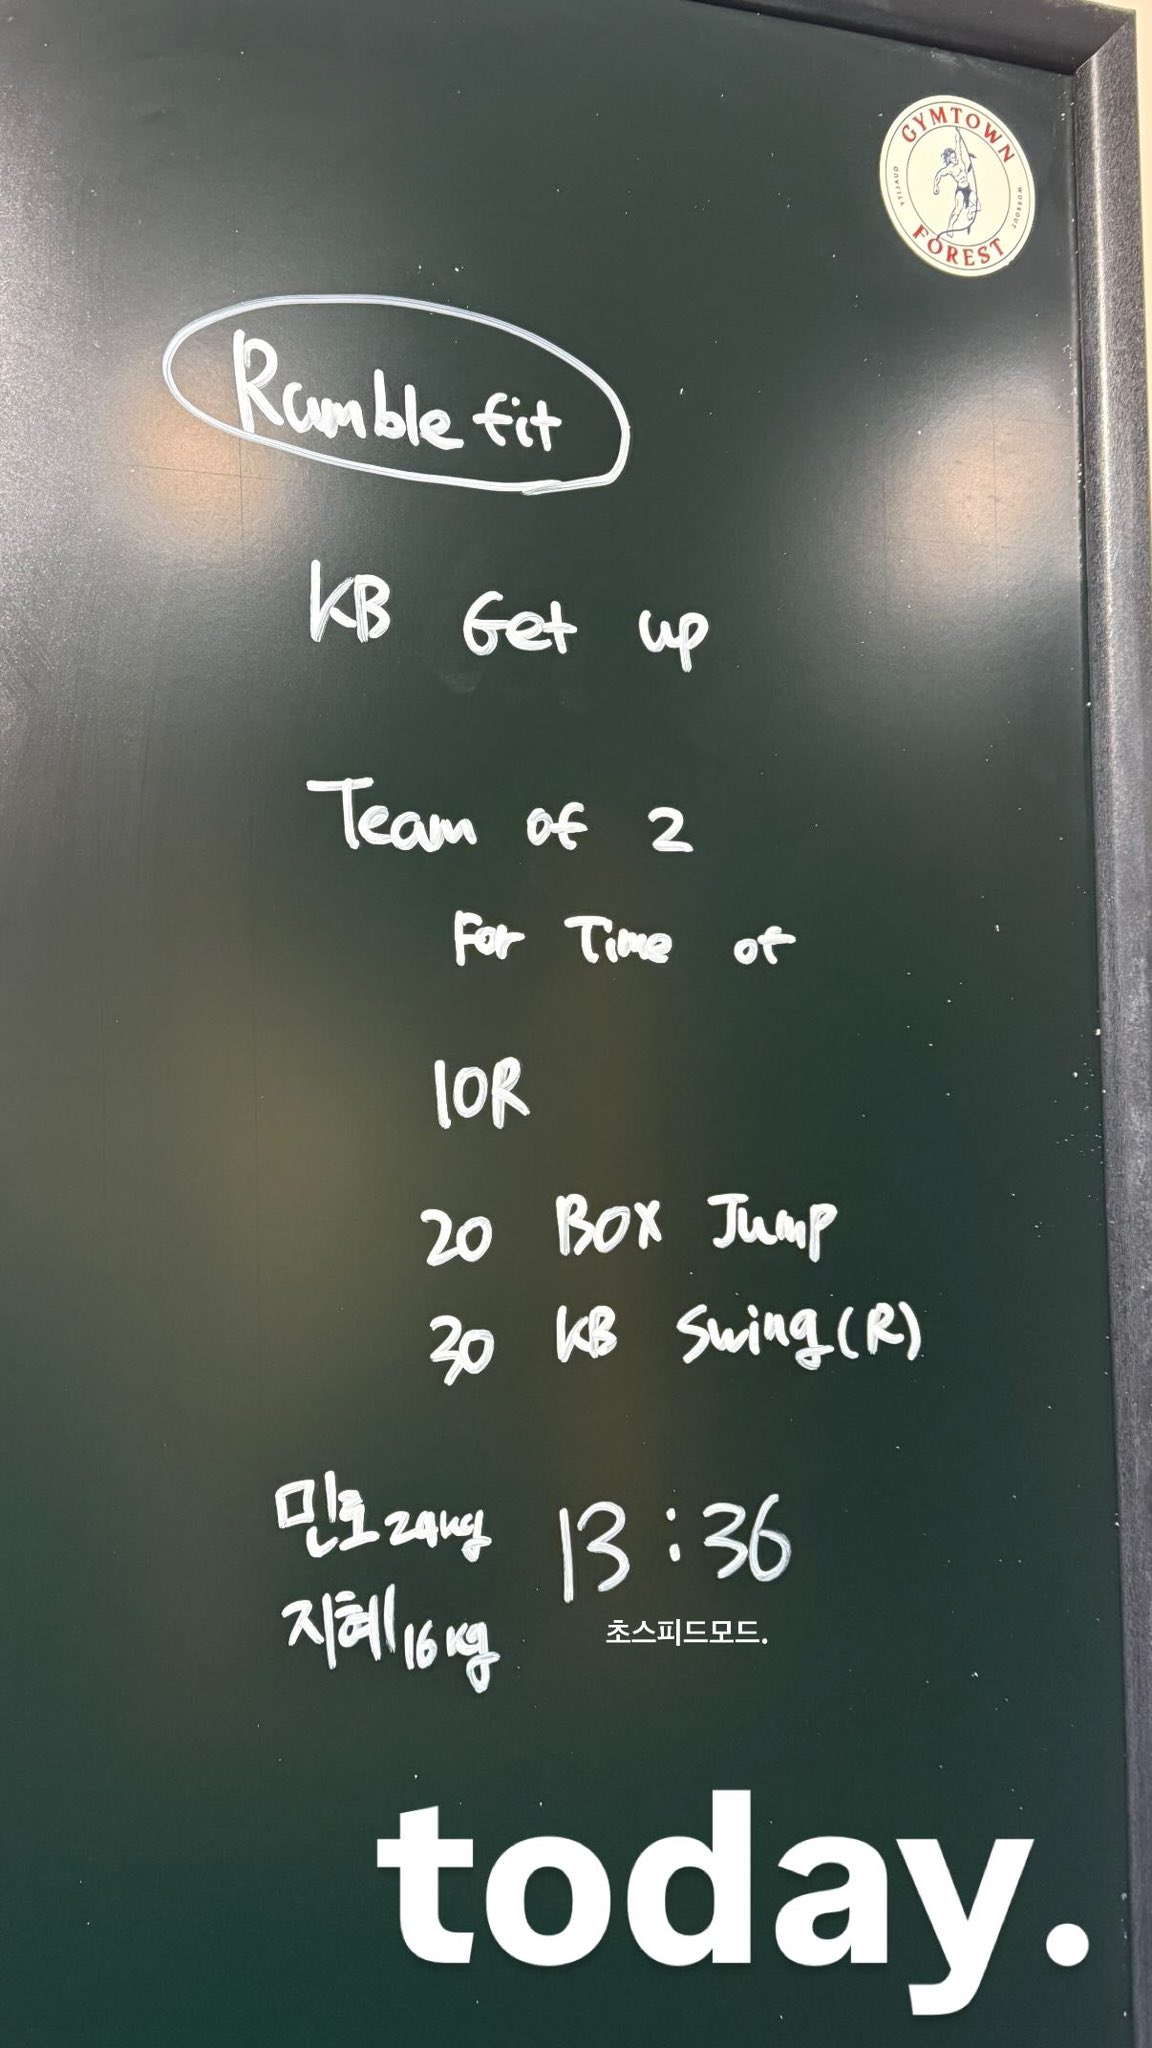 GYMTOWN
QUALITY
WORKOUT
FOREST
Rumble fit
KB Get up
Team of 2
For Time of
10R
20 BOX Jump
30 KB Swing(R)
민호 24kg 13:36
지혜 16kg 초스피드모드.
today.